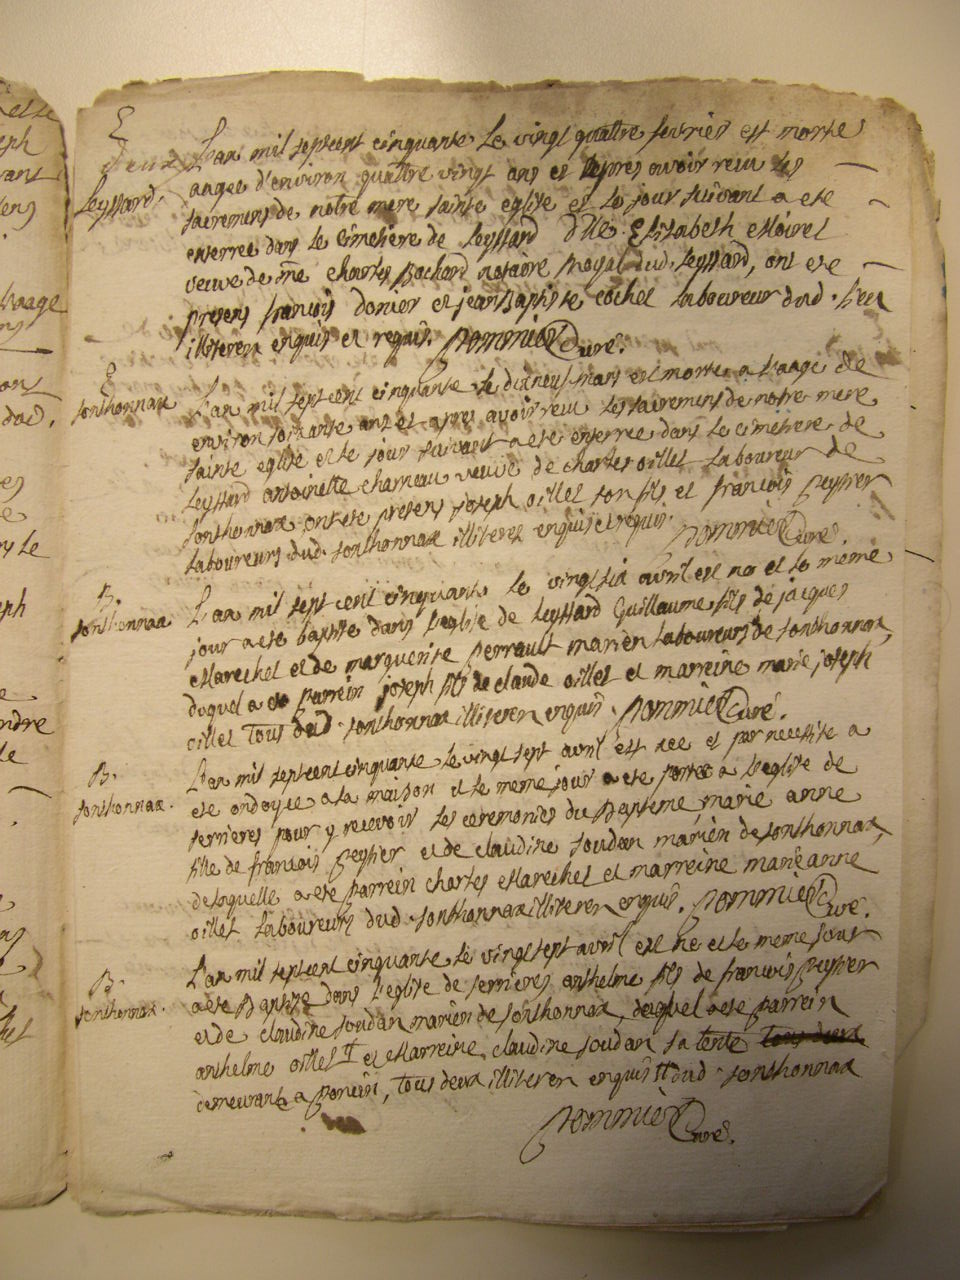 E
L'an mil septcent cinquante le vingt quattre fevrier est morte
Leyssard. aagee d'environ quattre vingt ans et apres avoir receu les
sacremens de notre mere sainte eglise et le jour suivant a ete
enterree dans le cimetiere de Leyssard dlle Elizabeth Moirel
veuve de me charles Bochard notaire Royal dud. Leyssard, ont ete
presens francois donier et jean Baptiste cochel laboureur dud. lieu
illiteres enquis et requis. Pommier Curé.
E
sonthonnax L'an mil septcent cinquante le dixneuf mars est morte a l'aage de
environ soixante ans et apres avoir receu les sacremens de notre mere
sainte eglise et le jour suivant a ete enterree dans le cimetiere de
Leyssard antoinette charneau veuve de charles oillet laboureur de
sonthonnax ont ete presens joseph oillet son fils et francois peyssier
laboureurs dud. sonthonnax illiteres enquis et requis. Pommier Curé.
B.
sonthonnax L'an mil sept cent cinquante le vingt six avril est né et le meme
jour a ete baptisé dans l'eglise de Leyssard Guillaume fils de jacques
Marechel et de marguerite perrault mariés laboureurs de sonthonnax,
duquel a ete parrein joseph fils de claude oillet et marreine marie joseph
oillet tous dud. sonthonnax illiteres enquis. Pommier Curé.
B.
sonthonnax. L'an mil septcent cinquante le vingt sept avril est née et par necessité a
ete ondoyée a la maison et le meme jour a ete portée a l'eglise de
serrieres pour y recevoir les ceremonies du Bapteme marie anne
fille de francois peyssier et de claudine soudan mariés de sonthonnax,
de laquelle a ete parrein charles Marechel et marreine marie anne
oillet laboureurs dud. sonthonnax illiteres enquis. Pommier Curé.
B.
sonthonnax. L'an mil septcent cinquante le vingt sept avril est né et le meme jour
a ete Baptisé dans l'eglise de serrieres anthelme fils de francois peyssier
et de claudine soudan mariés de sonthonnax, duquel a ete parrein
anthelme oillet # et Marreine claudine soudan sa tente tous deux
demeurante a poncin, tous deux illiteres enquis # dud. sonthonnax
Pommier Curé.